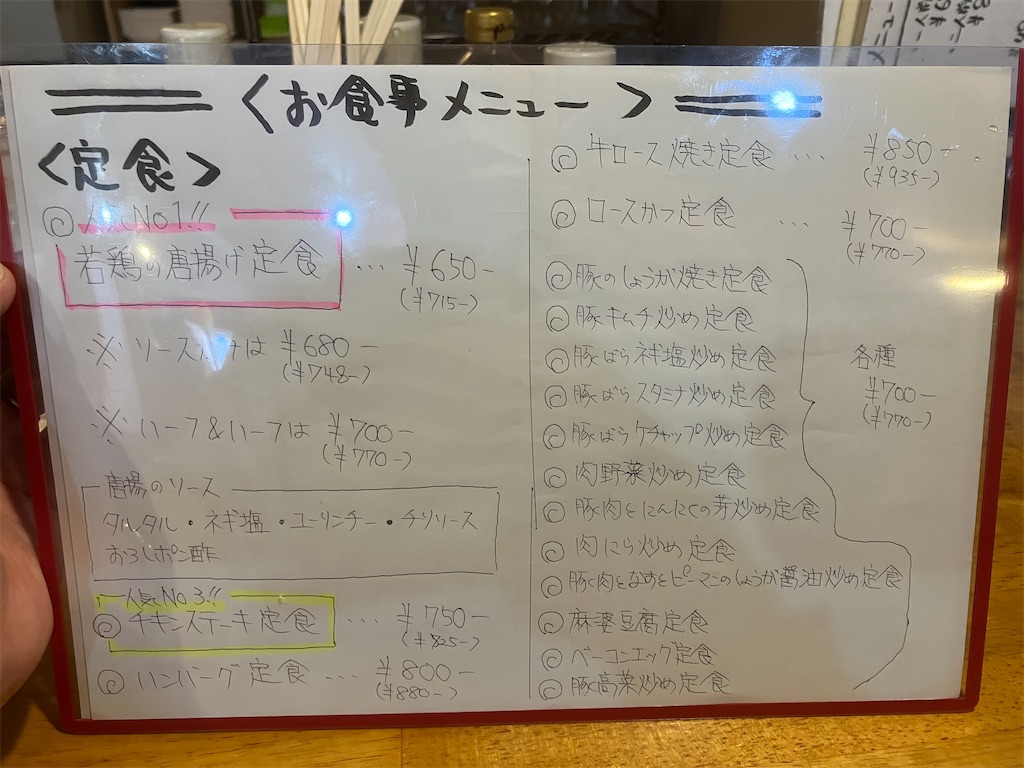 ＜お食事メニュー＞
＜定食＞
◎人気No1!!
若鶏の唐揚げ定食 … ¥650-
(¥715-)
※ ソースカツは ¥680-
(¥748-)
※ ハーフ&ハーフは ¥700-
(¥770-)
唐揚のソース
タルタル・ネギ塩・ユーリンチー・チリソース
おろしポン酢
人気No.3!!
◎チキンステーキ定食 … ¥750-
(¥825-)
◎ハンバーグ定食 … ¥800-
(¥880-)
◎牛ロース焼き定食 … ¥850-
(¥935-)
◎ロースかつ定食 … ¥700-
(¥770-)
◎豚のしょうが焼き定食
◎豚キムチ炒め定食
◎豚ばらネギ塩炒め定食
◎豚ばらスタミナ炒め定食
◎豚ばらケチャップ炒め定食
◎肉野菜炒め定食
◎豚肉とにんにくの芽炒め定食
◎肉にら炒め定食
◎豚肉となすとピーマンのしょうが醤油炒め定食
◎麻婆豆腐定食
◎ベーコンエッグ定食
◎豚高菜炒め定食
各種
¥700-
(¥770-)